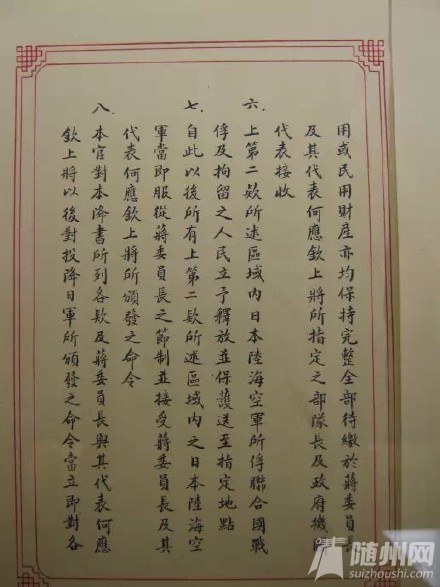 用或民用財產亦均保持完整全部待繳於蔣委員長
及其代表何應欽上將所指定之部隊長及政府機
代表接收
六、上第二款所述區域內日本陸海空軍所俘聯合國戰
俘及拘留之人民立予釋放並保護送至指定地點
七、自此以後所有上第二款所述區域內之日本陸海空
軍當即服從蔣委員長之節制並接受蔣委員長及其
代表何應欽上將所頒發之命令
八、本官對本降書所列各款及蔣委員長與其代表何應
欽上將以後對投降日軍所頒發之命令當立即對各
随州网
suizhoushi.com